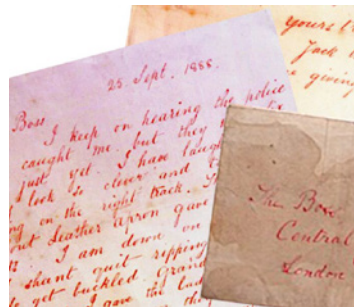 25 Sept. 1888.
Boss
I keep on hearing the police
caught me but they
just yet. I have laugh
look so clever and t
on the right track. 
Leather apron gave
I am down on
shant quit ripping
get buckled. Grand
I gave the lad
yours t
Jack
giving
The Boss
Central
London